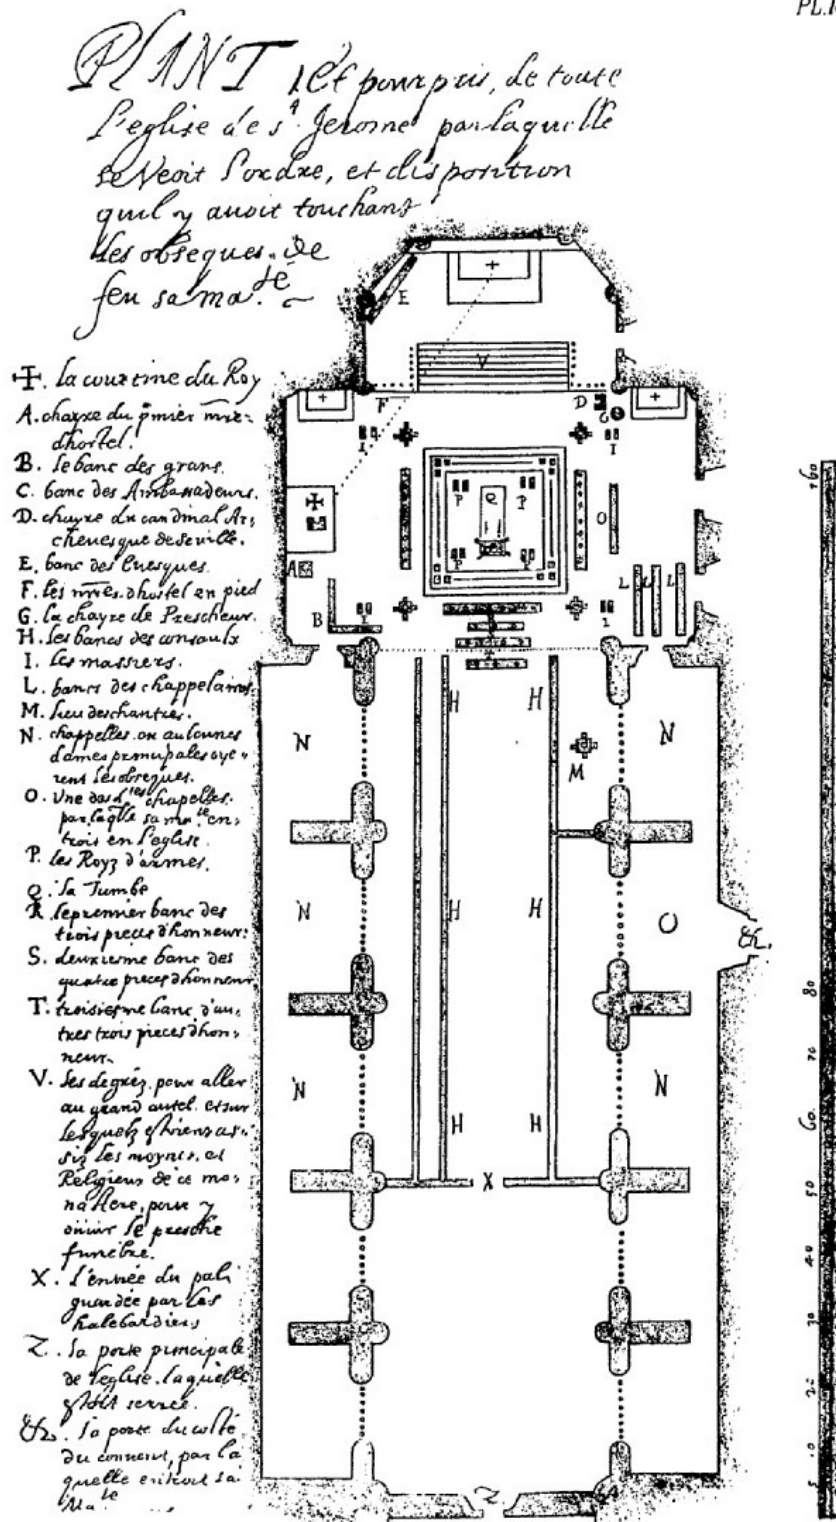 PL.
PLANT, et pourpris, de toute
l'eglise de s.t Jerome par laquelle
se veoit l'ordre, et disposition
quil y avoit touchant
les obseques de
feu sa ma.té
✠. la courtine du Roy
A. chayre du pmier mre
dhostel.
B. le banc des grans.
C. banc des Ambassadeurs.
D. chayre du cardinal Ar:
chevesque de seville.
E. banc des Evesques.
F. les mres dhostel en pied
G. la chayre de Prescheur.
H. les bancs des consaulx
I. les massiers.
L. bancs des chappelains
M. lieu des chantres.
N. chappelles ou aulcunes
dames principales oye:
rent les obseques.
O. Une des d.tes chapelles.
par laqlle sa ma.te en:
troit en l'eglise.
P. les Royz d'armes.
Q. la Tumbe
R. le premier banc des
trois pieces d'honneur:
S. deuxiesme banc des
quatre pieces d'honneur
T. troisiesme banc d'au:
tres trois pieces d'hon:
neur.
V. les degrez pour aller
au grand autel. et sur
lesquelz estoient as:
siz les moynes. et
Religieux de ce mo:
nastere, pour y
ouir le presche
funebre.
X. l'entrée du pali
guardée par les
halebardiers
Z. la porte principale
de l'eglise. laquelle
estoit serrée.
&. la porte du costé
du convent, par la
quelle entroit sa
Ma.te
E
V
F D
G
I I
P Q P
O
P P
A
L L L
B I I
T
H H
N N
M
N H H O &
N N
H H
X
Z
160
80
70
60
50
40
30
20
10
5